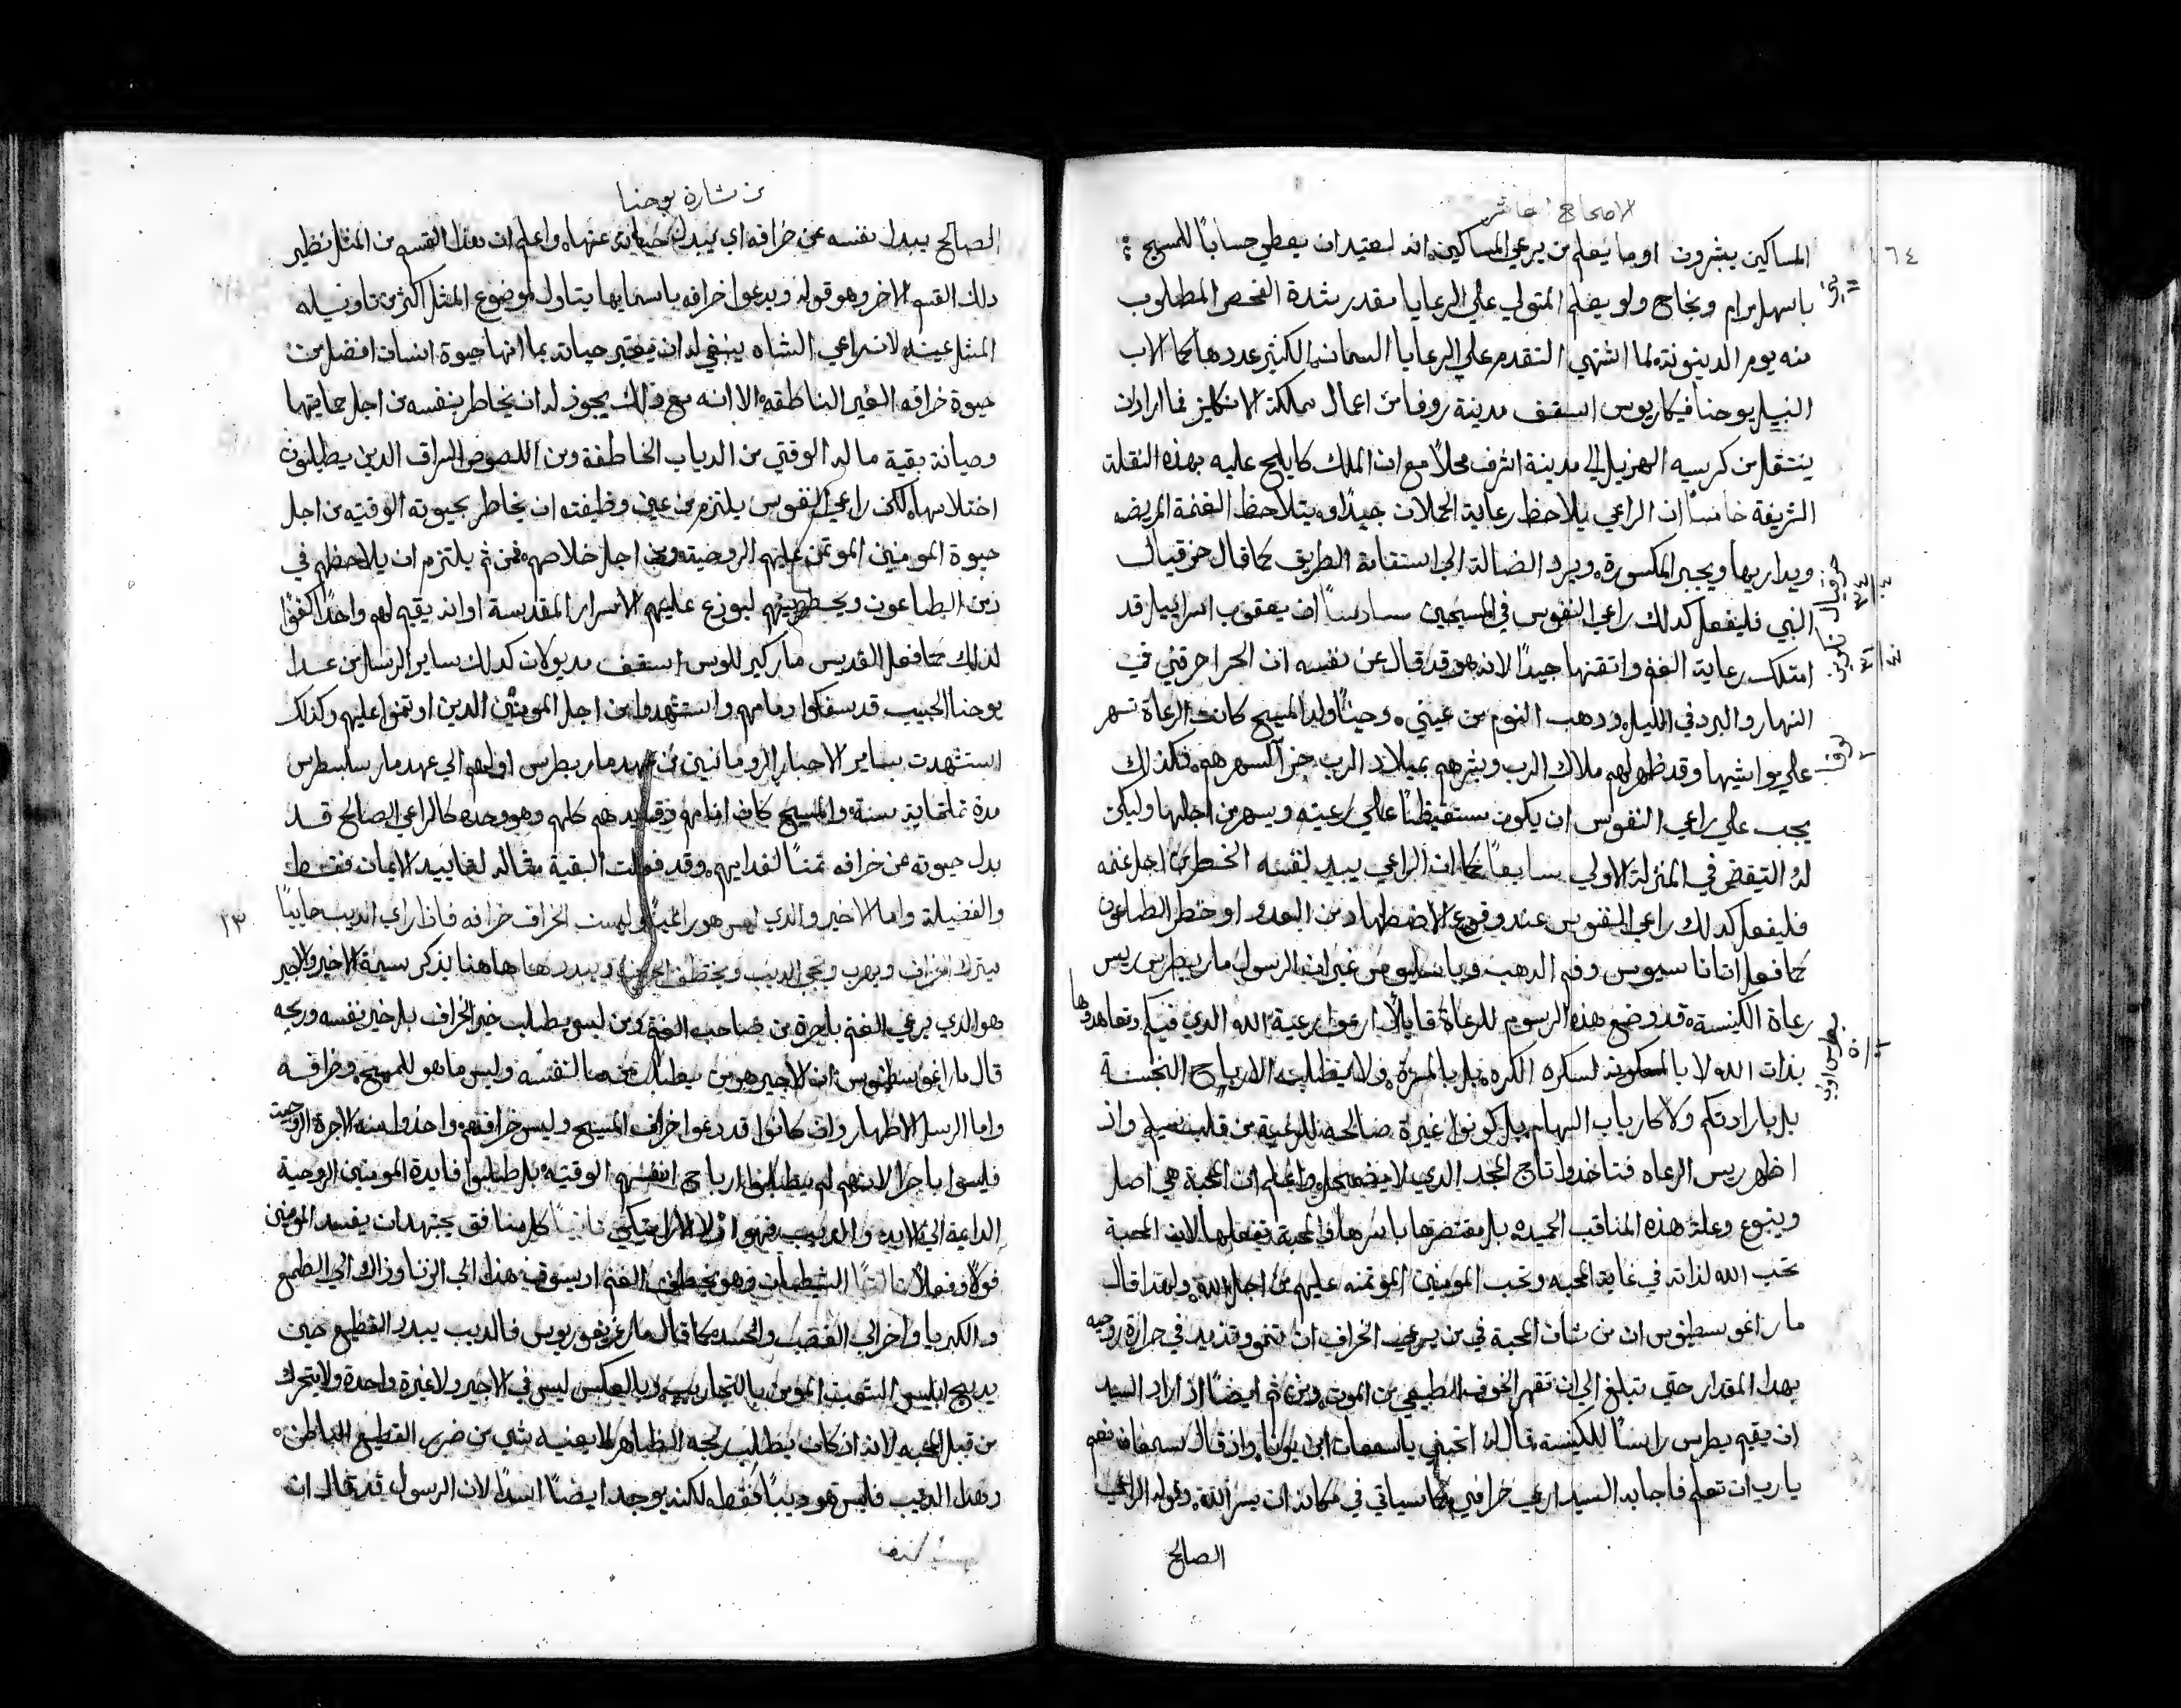 الاصحاح العاشر
٦٤
المساكين يبشرون اوما يعلم من يرعي المساكين انه لعتيد ان يعطي حسابًا للمسيح
باسهل مرام ونجاح ولو يعلم المتولي علي الرعايا مقدر شدة الفحص المطلوب
منه يوم الدينونة لما اشتهي التقدم علي الرعايا السمان الكثير عددها كما الاب
النبيل يوحنا فيكاريوس اسقف مدينة روفا من اعمال مملكة الانكليز فما اراد ان
ينتقل من كرسيه الهزيل الي مدينة اشرف محلاً مع ان الملك كا يلح عليه بهذه النقلة
الشريفة خامسًا ان الراعي يلاحظ رعاية الحملان جيدًا ويتلاحظ الغنمة المريضه
ويداريها ويجبر المكسورة ويرد الضالة الي استقامة الطريق كما قال حزقيال
النبي فليفعل كدلك راعي النفوس في المسيحين سادسًا ان يعقوب اسراييل قد
امتلك رعاية الغنم واتقنها جيدًا لانه هو قد قال عن نفسه ان الحر احرقني في
النهار والبرد في الليل ودهب النوم من عيني وحيث ولد المسيح كانت الرعاة تسهر
علي مواشيها وقد ظهر لهم ملاك الرب وبشرهم بميلاد الرب جزا لسهرهم فكذلك
يجب علي راعي النفوس ان يكون مستقيظًا علي رعيته ويسهر من اجلها وليكن
له التيقض في المنزلة الاولي سابعًا كما ان الراعي يبيد لنفسه الخطر من اجل غنمه
فليفعل كدلك راعي النفوس عند وقوع الاضطهاد من العدو او خطر الطاعون
كما فعل اتاناسيوس وفم الدهب وباسليوس غير ان الرسول مار بطرس ريس
رعاة الكنيسة قد وضع هذه الرسوم للرعاة قايلاً ارعوا رعية الله الذي فيكم وتعاهدوها
بذات الله لا بالمعكونة لسكره الكره بل بالمسرة ولا بطلبة الارباح النجسة
بل بارادتكم ولا كارباب السهام بل كونوا غيرة صالحه للرعية من قلب سليم واذ
اظهر ريس الرعاه فتاخدوا تاج المجد الدي لا يضمحل واعلم ان المحبة هي اصل
وينبوع وعلة هذه المناقب الحميده بل مقتصرها باسرها والمحبة تفعلها لان المحبة
تحب الله لذاته في غاية المحبه وتحب المومنين الموتمنه عليهم من اجل الله ولهدا قال
مار اغوسطينوس ان من شان المحبة في من يرعي الخراف ان تنمو وتزيد في حرارة روحيه
بهدا المقدار حتي تبلغ الي ان تقهر الخوف الطبيعي من الموت ومن ثم ايضًا اذ اراد السيد
ان يقيم بطرس رايسًا للكنيسة قال له اتحبني ياسمعان ابن يونا واذ قال سمعان نعم
يارب انت تعلم فاجابه السيد ارعي خرافي كما سياتي في مكانه ان يسر الله وقوله الراعي
الصالح
حزقيال
٣٤
تكوين
٣١
لوقا
٢
بطرس اولي
٥
من بشارة يوحنا
الصالح يبدل نفسه عن خرافه اي يبدل حياته عنها واعلم ان هذا القسم من المثل نظير
دلك القسم الاخر وهو قوله ويدعوا خرافه باسمايها يتاول لموضوع المثل اكثر من تاويله
المثل عينه لان راعي الشاه ينبغي له ان يعتبر حياته بما انها حيوة انسان افضل من
حيوة خرافه الغير الناطقه الا انه مع ذلك يجوز له ان يخاطر بنفسه من اجل حمايتها
وصيانة بقية ماله الوقتي من الدياب الخاطفة ومن اللصوص السراق الدين يطلبون
اختلاسها لكن راعي النفوس يلتزم من عين وظيفته ان يخاطر بحيوته الوقتيه من اجل
حيوة المومنين الموتمن عليهم الروحيته ومن اجل خلاصهم فمن ثم يلتزم ان يلاحظهم في
زمن الطاعون ويحطهم ليوزع عليهم الاسرار المقدسة او انه يقيم لهم واحدًا كفوًا
لذلك كما فعل القديس مار كيرللوس اسقف مديولان كدلك ساير الرسل من عدا
يوحنا الحبيب قد سفكوا دمامهم واستشهدوا من اجل المومنين الدين اوتمنوا عليهم وكذلك
استشهدت ساير الاحبار الرومانيين من عهد مار بطرس اولهم الي عهد مار سلبسطرس
مدة تلتماية سنة والمسيح كان امامهم وقايدهم كلهم وهو وحده كالراعي الصالح قد
بدل حيوته عن خرافه ثمنًا لفدايهم وقد فعلت البقية مثاله لفاييد الايمان فقط
١٣
والفضيلة واما الاخير والدي ليس هو راعيًا وليست الخراف خرافه فاذا راي الديب جاييًا
يترك الخراف ويهرب ويجي الديب ويختطف الخراف ويبددها هاهنا يذكر سيمة الاخير والاجير
هو الدي يرعي الغنم باجرة من صاحب الغنم ومن ليس يطلب خير الخراف بل خير نفسه وربحه
قال مار اغوسطينوس ان الاجير هو من يطلب ما لنفسه وليس ما هو للمسيح وخرافه
واما الرسل الاطهار وان كانوا قد رعوا خراف المسيح وليس خرافهم واخذوا منه الاجرة الروحية
فليسوا باجرا لانهم لم يطلبوا ارباح انفسهم الوقتيه بل طلبوا فايدة المومنين الروحية
الداعية الي الابد والديب فهو اولاً الاراتيكي ثانيًا كل منافق يجتهد ان يفسد المومنين
قولاً وفعلاً ثالثًا الشيطان وهو يخطف الغنم اد يسوق هذا الي الزنا وذاك الي الطمع
والكبريا واخر الي الغضب والحسد كما قال مار غريغوريوس فالديب يبدد القطيع حين
يدبح ابليس الشعب المومن بالتجاريب وبالعكس ليس في الاجير ولا غيرة واحدة ولا يتحرك
من قبل المحبه لانه ان كان يطلب ربحه الظاهر لا يعنيه شي من ضرر القطيع الباطن
وهدا الديب فليس هو ديبًا فقط لكنه يوجد ايضًا اسدًا لان الرسول قد قال ان